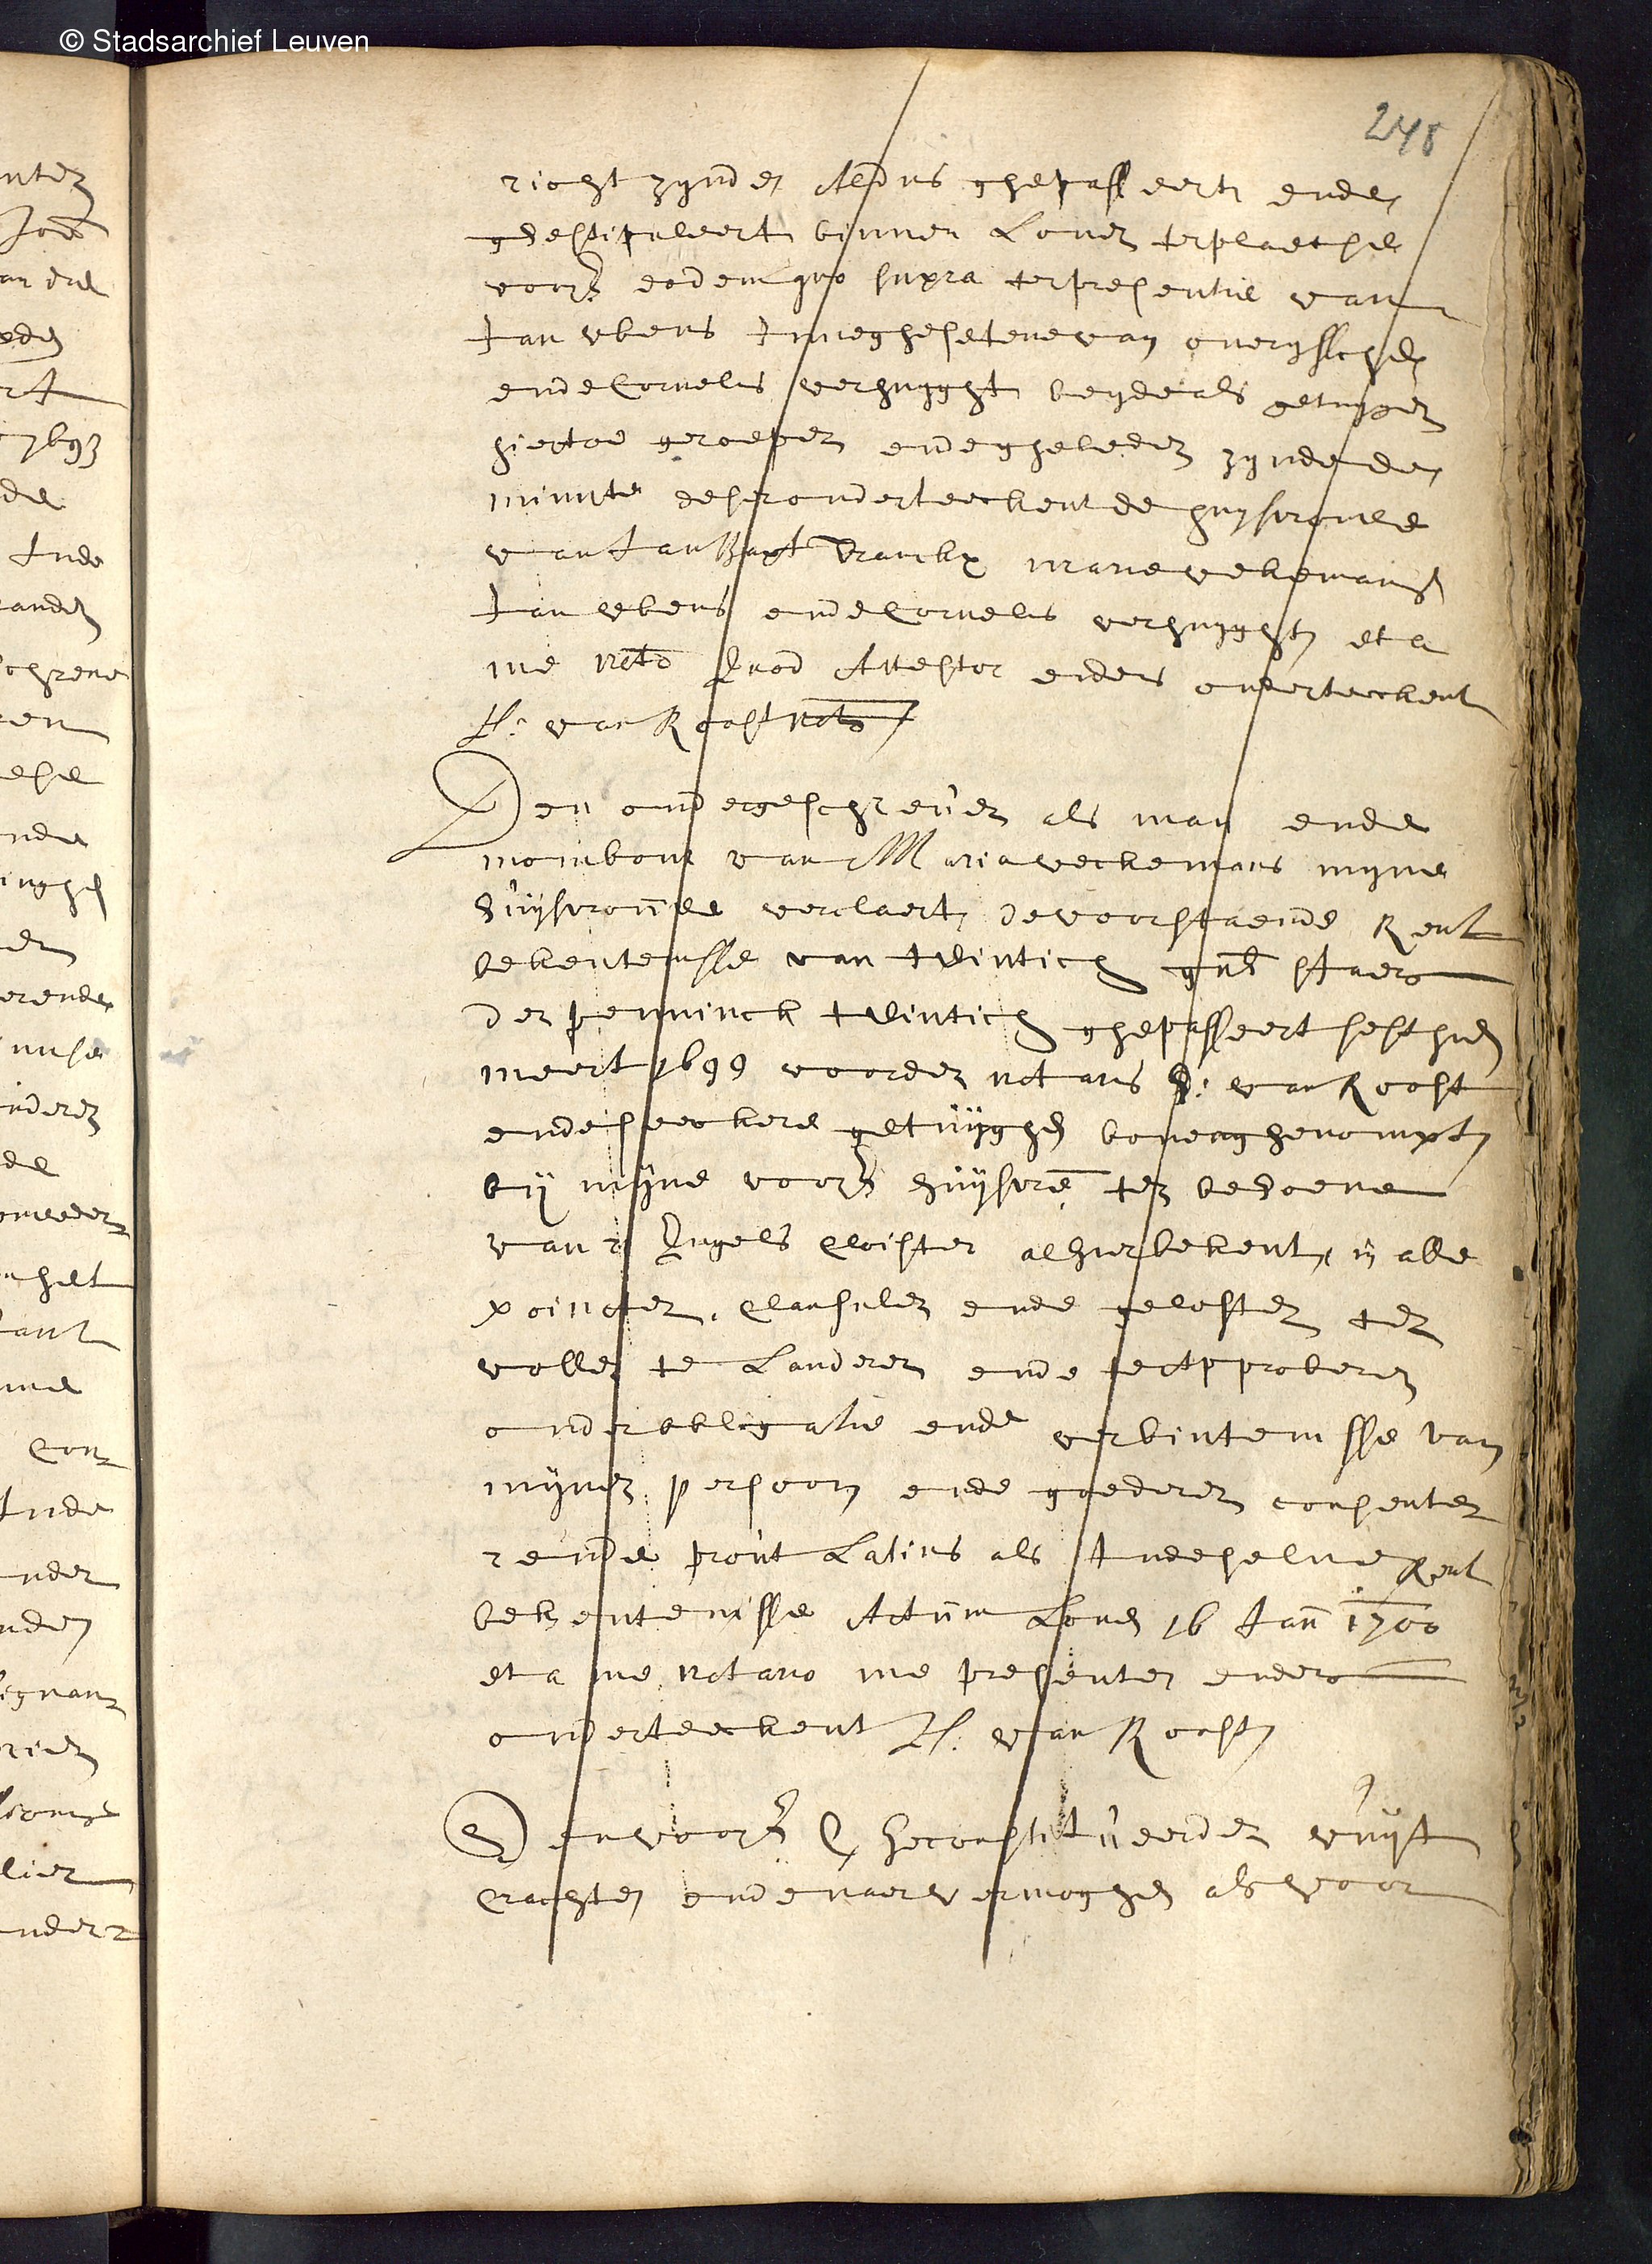 © Stadsarchief Leuven
248
richt zynde, Aldus ghepasseert ende
ghestipuleert binnen Loven ter plaetse
voors eodem quo supra ter presentie van
Jan Ubens Inneghesetene van overyssche
ende Cornelis verhuyght beyde als getuygen
hiertoe geroepen ende ghebeden zynde de
minute deser onderteeckent de huysvrouwe
van Jan Bapt Vranckx marie vekemans
Jan Ubens ende Cornelis verhuyght et a
me noto quod Attestor ende is onderteeckent
H: van Roost nots
Den ondergeschreven als man ende
momboir van Maria veckemans myne
huysvrouwe verclaert de voorstaende Rent
bekentenisse van twintich guls tsiaers
den penninck twintich ghepasseert sesthien
meert 1699 voorden notaris H: van Roost
ende seeckere getuyghen boven ghenompt
by myne voors huysvre ten behoeve
van Engels Clooster alhier bekent, in alle
poincten, Clausulen ende geloften ten
vollen te Lauderen ende te Approberen
onder obligatie ende verbintenisse van
mynen persoon ende goederen consente
rende prout Latius als Inde selve Rent
bekentenisse Actum Loven 16 Jan 1700
et a me notario me presente ende is
onderteeckent H: van Roost
Den voors Geconstitueerden vuyt
Crachte ende naer vermoghen als voor